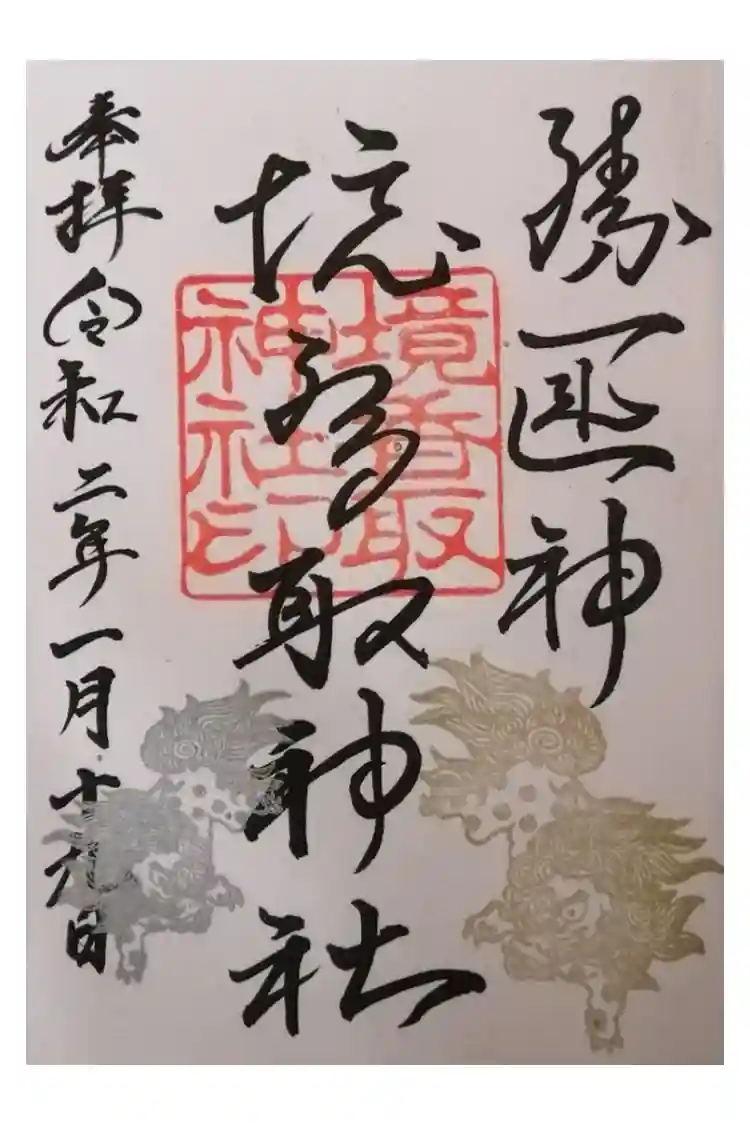 勝 神
境香取神社
境香取
神社印
奉拝 令和二年一月十九日